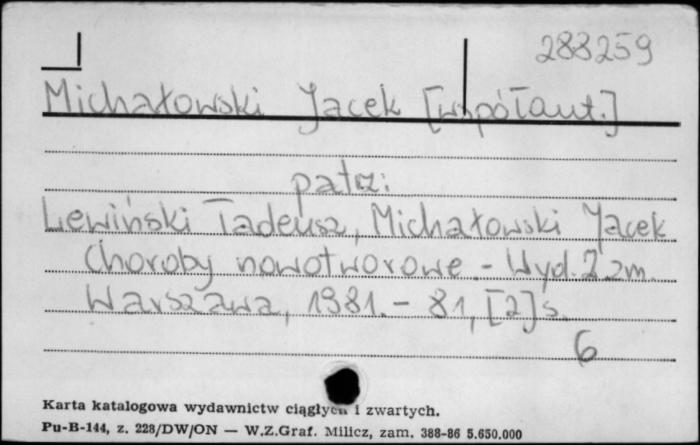 288259
Michałowski Jacek [współaut.]
patrz:
Lewiński Tadeusz, Michałowski Jacek
Choroby nowotworowe. - Wyd. 2 zm.
Warszawa, 1981. - 81, [2] s.
6
Karta katalogowa wydawnictw ciągłych i zwartych.
Pu-B-144, z. 228/DW/ON — W.Z.Graf. Milicz, zam. 388-86 5.650.000